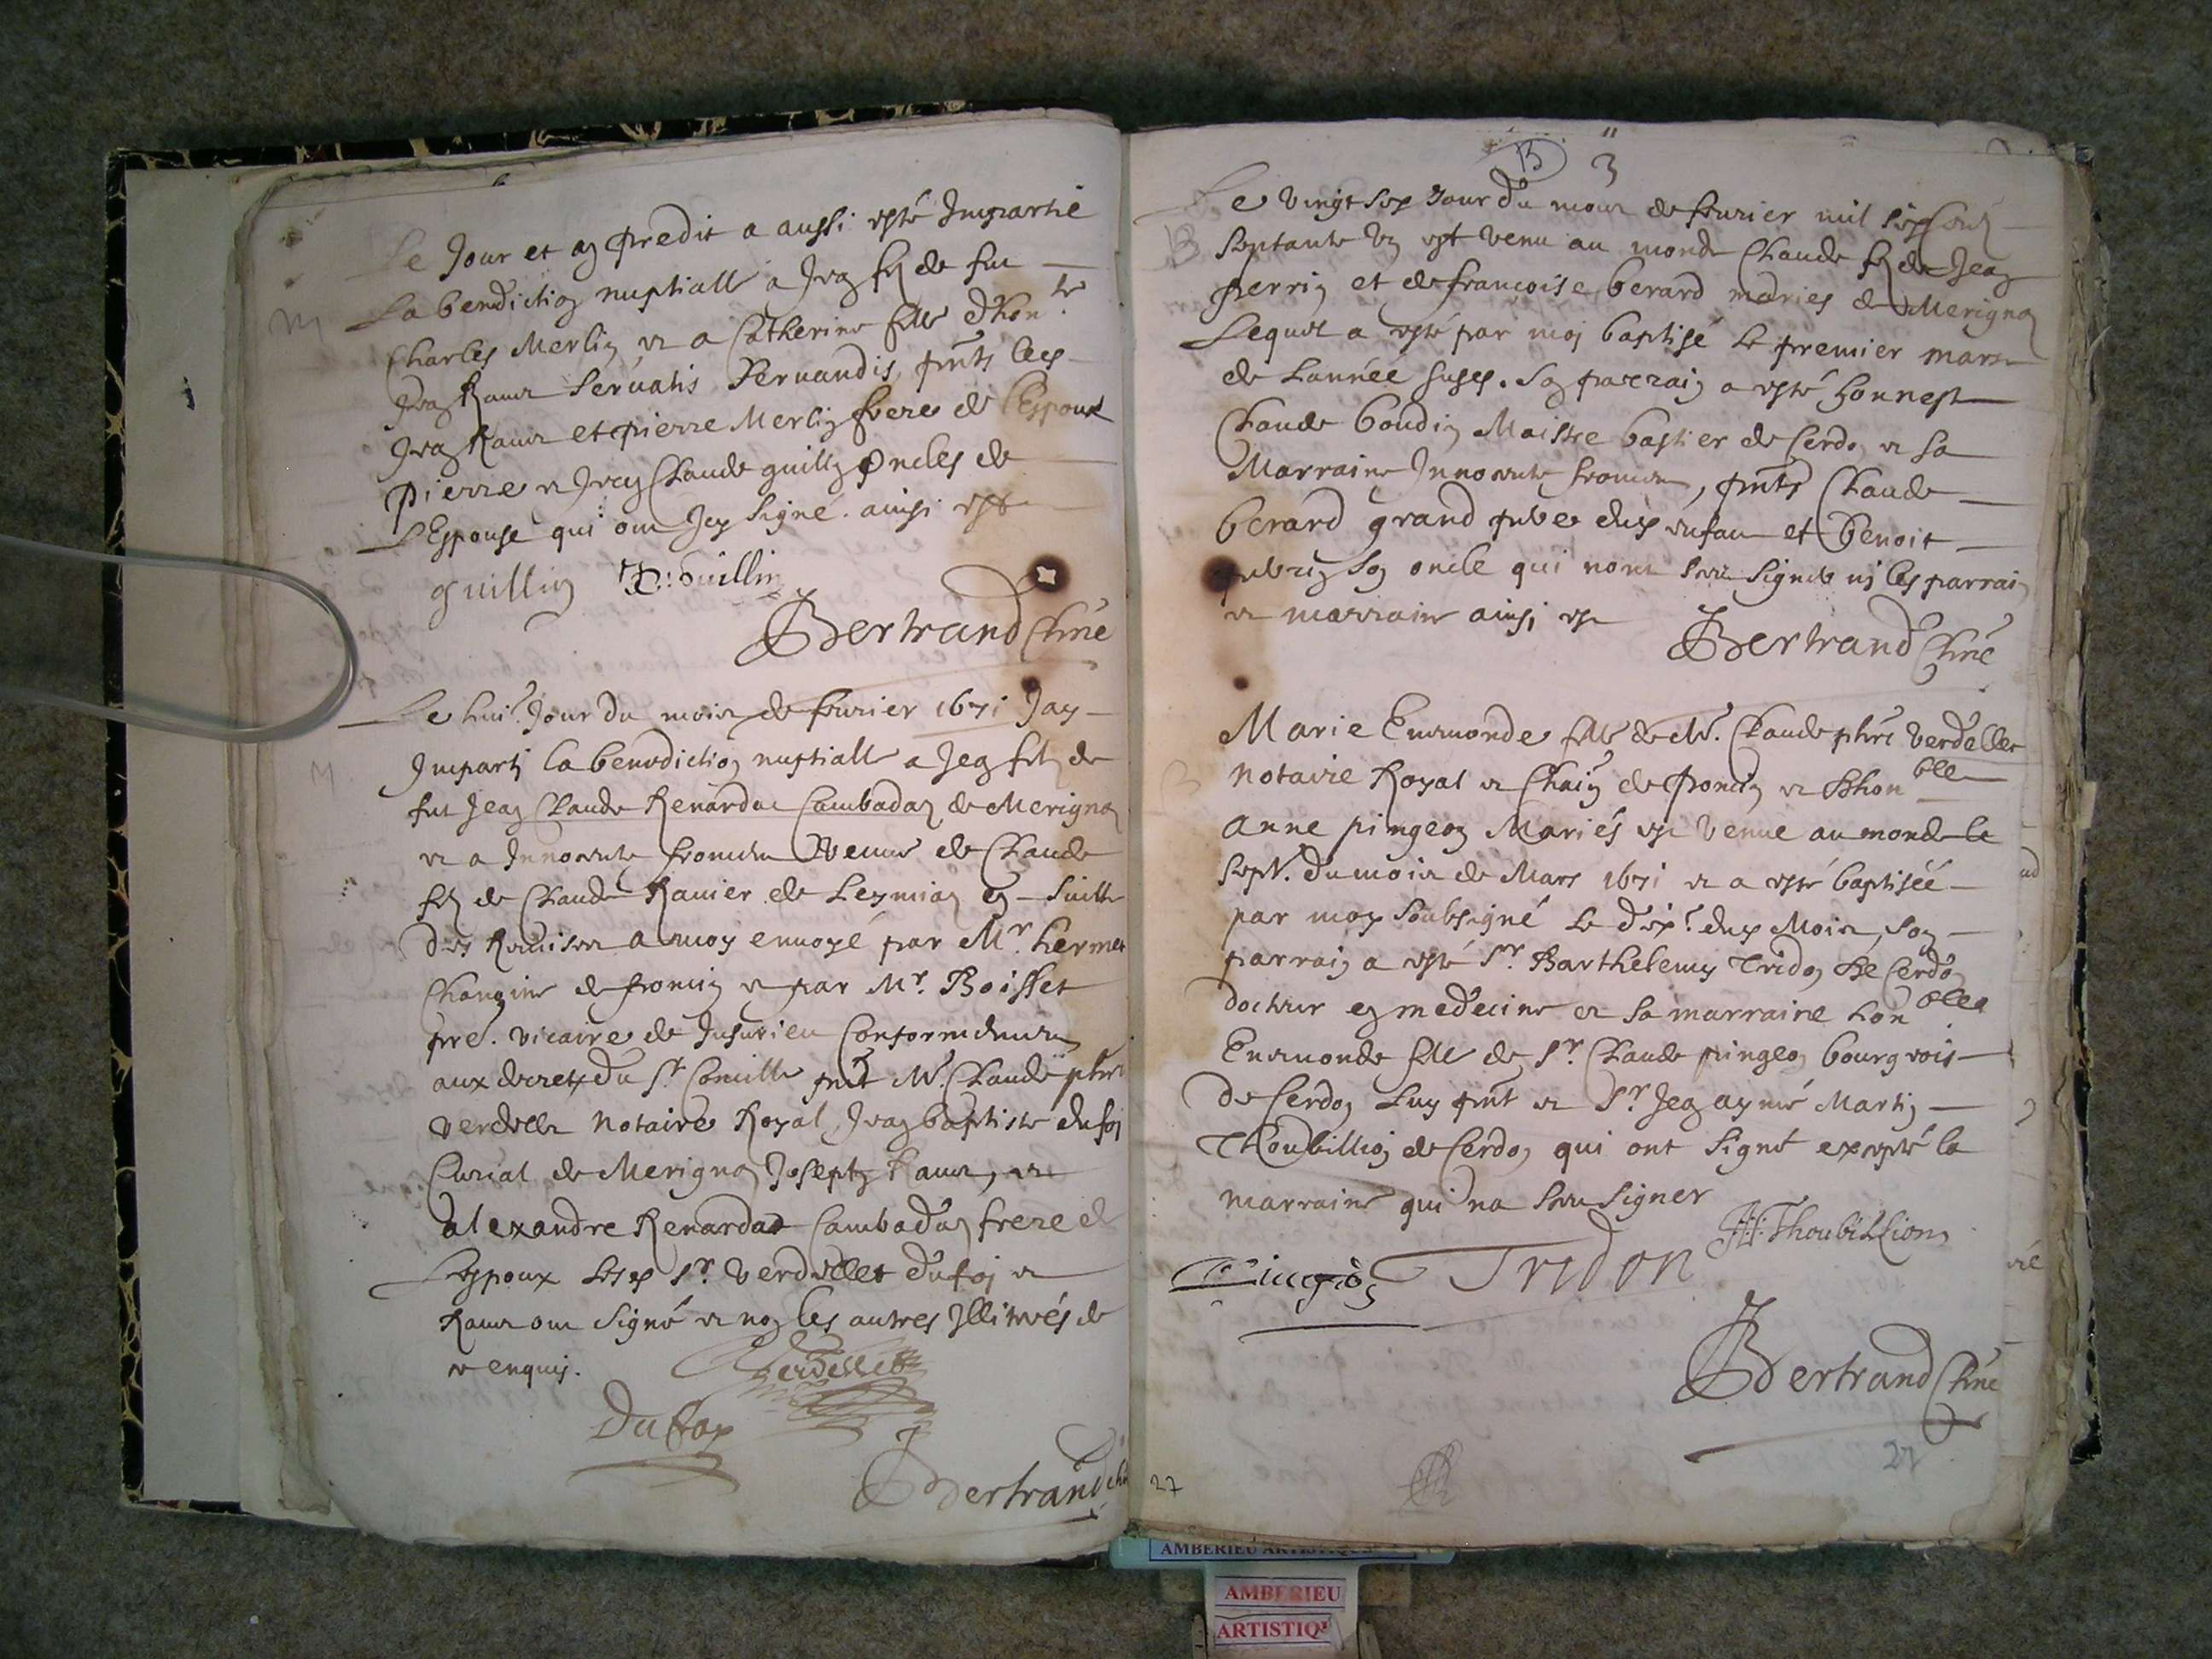 Le Jour et an predit a aussi esté Imparti
M
La benediction nuptialle a Jean fils de feu
Charles Merlin et a Catherine fille d'hon.te
Jean Ravet Servatis Pernaudis, pnts lesp
Jean Ravet et pierre Merlin frere de lEspoux
Pierre et Jean Claude guillin oncles de
LEspouse qui ont Icy signé. ainsi est
guillin guillin
Bertrand Curé
Le hui.t Jour du mois de feurier 1671 Jay
M
Imparti la benediction nuptialle a Jean fils de
feu Jean Claude Renardat Cambadon de Merigna
et a Innocente fromen veuve de Claude
fils de Claude Ravier de Leymian en suitte
des Remises a moy envoyé par Mr. hermet
Chanoine de poncin et par Mr. Boisset
pre. vicaire de Jusurieu Conformement
aux decrets du St. Concille pnt Me. Claude phrt
verdellet Notaire Royal, Jean baptiste dufoi
Curial de Merigna Joseph Ravet, et
alexandre Renardat Cambadon frere de
Lespoux lesp Sr. verdellet dufoj et
Ravet ont signé et non les autres Illitrés de
ce enquis.
Verdellet
Dufoy
Bertrand
B
3
Le vingt sep Jour du mois de feurier mil six cent
B
septante un est venu au monde Claude fils de Jean
perrin et de francoise berard mariés de Merigna
Lequel a esté par moj baptisé le premier mars
de L'année susd. son parrain a esté honneste
Claude boudin Maistre bastier de Cerdon et sa
Marraine Innocente fromen, pnts Claude
berard grand pere dud enfant et benoit
perrin son oncle qui n'ont sceu signer nj les parrain
et marraine ainsi est
Bertrand Curé
Marie Enemonde fille de Me. Claude phrt verdellet
B
Notaire Royal et Chain de poncin et d'hon ble
anne pingeon Mariés est venue au monde le
sept. du mois de Mars 1671 et a esté baptisée
par moy soubsigné le dix.e dud Mois, son
parrain a esté Sr. Barthelemy Tridon de Cerdon
docteur en medecine et sa marraine hon ble
Enemonde fille de Sr. Claude pingeon bourgeois
de Cerdon Luy pnt et Sr. Jean aymé Martin
Thoubillion de Cerdon qui ont signé excepté la
marraine qui n'a sceu signer
Pingeon Tridon Thoubillion
Bertrand Curé
27
27
AMBERIEU ARTISTIQUE
AMBERIEU
ARTISTIQ